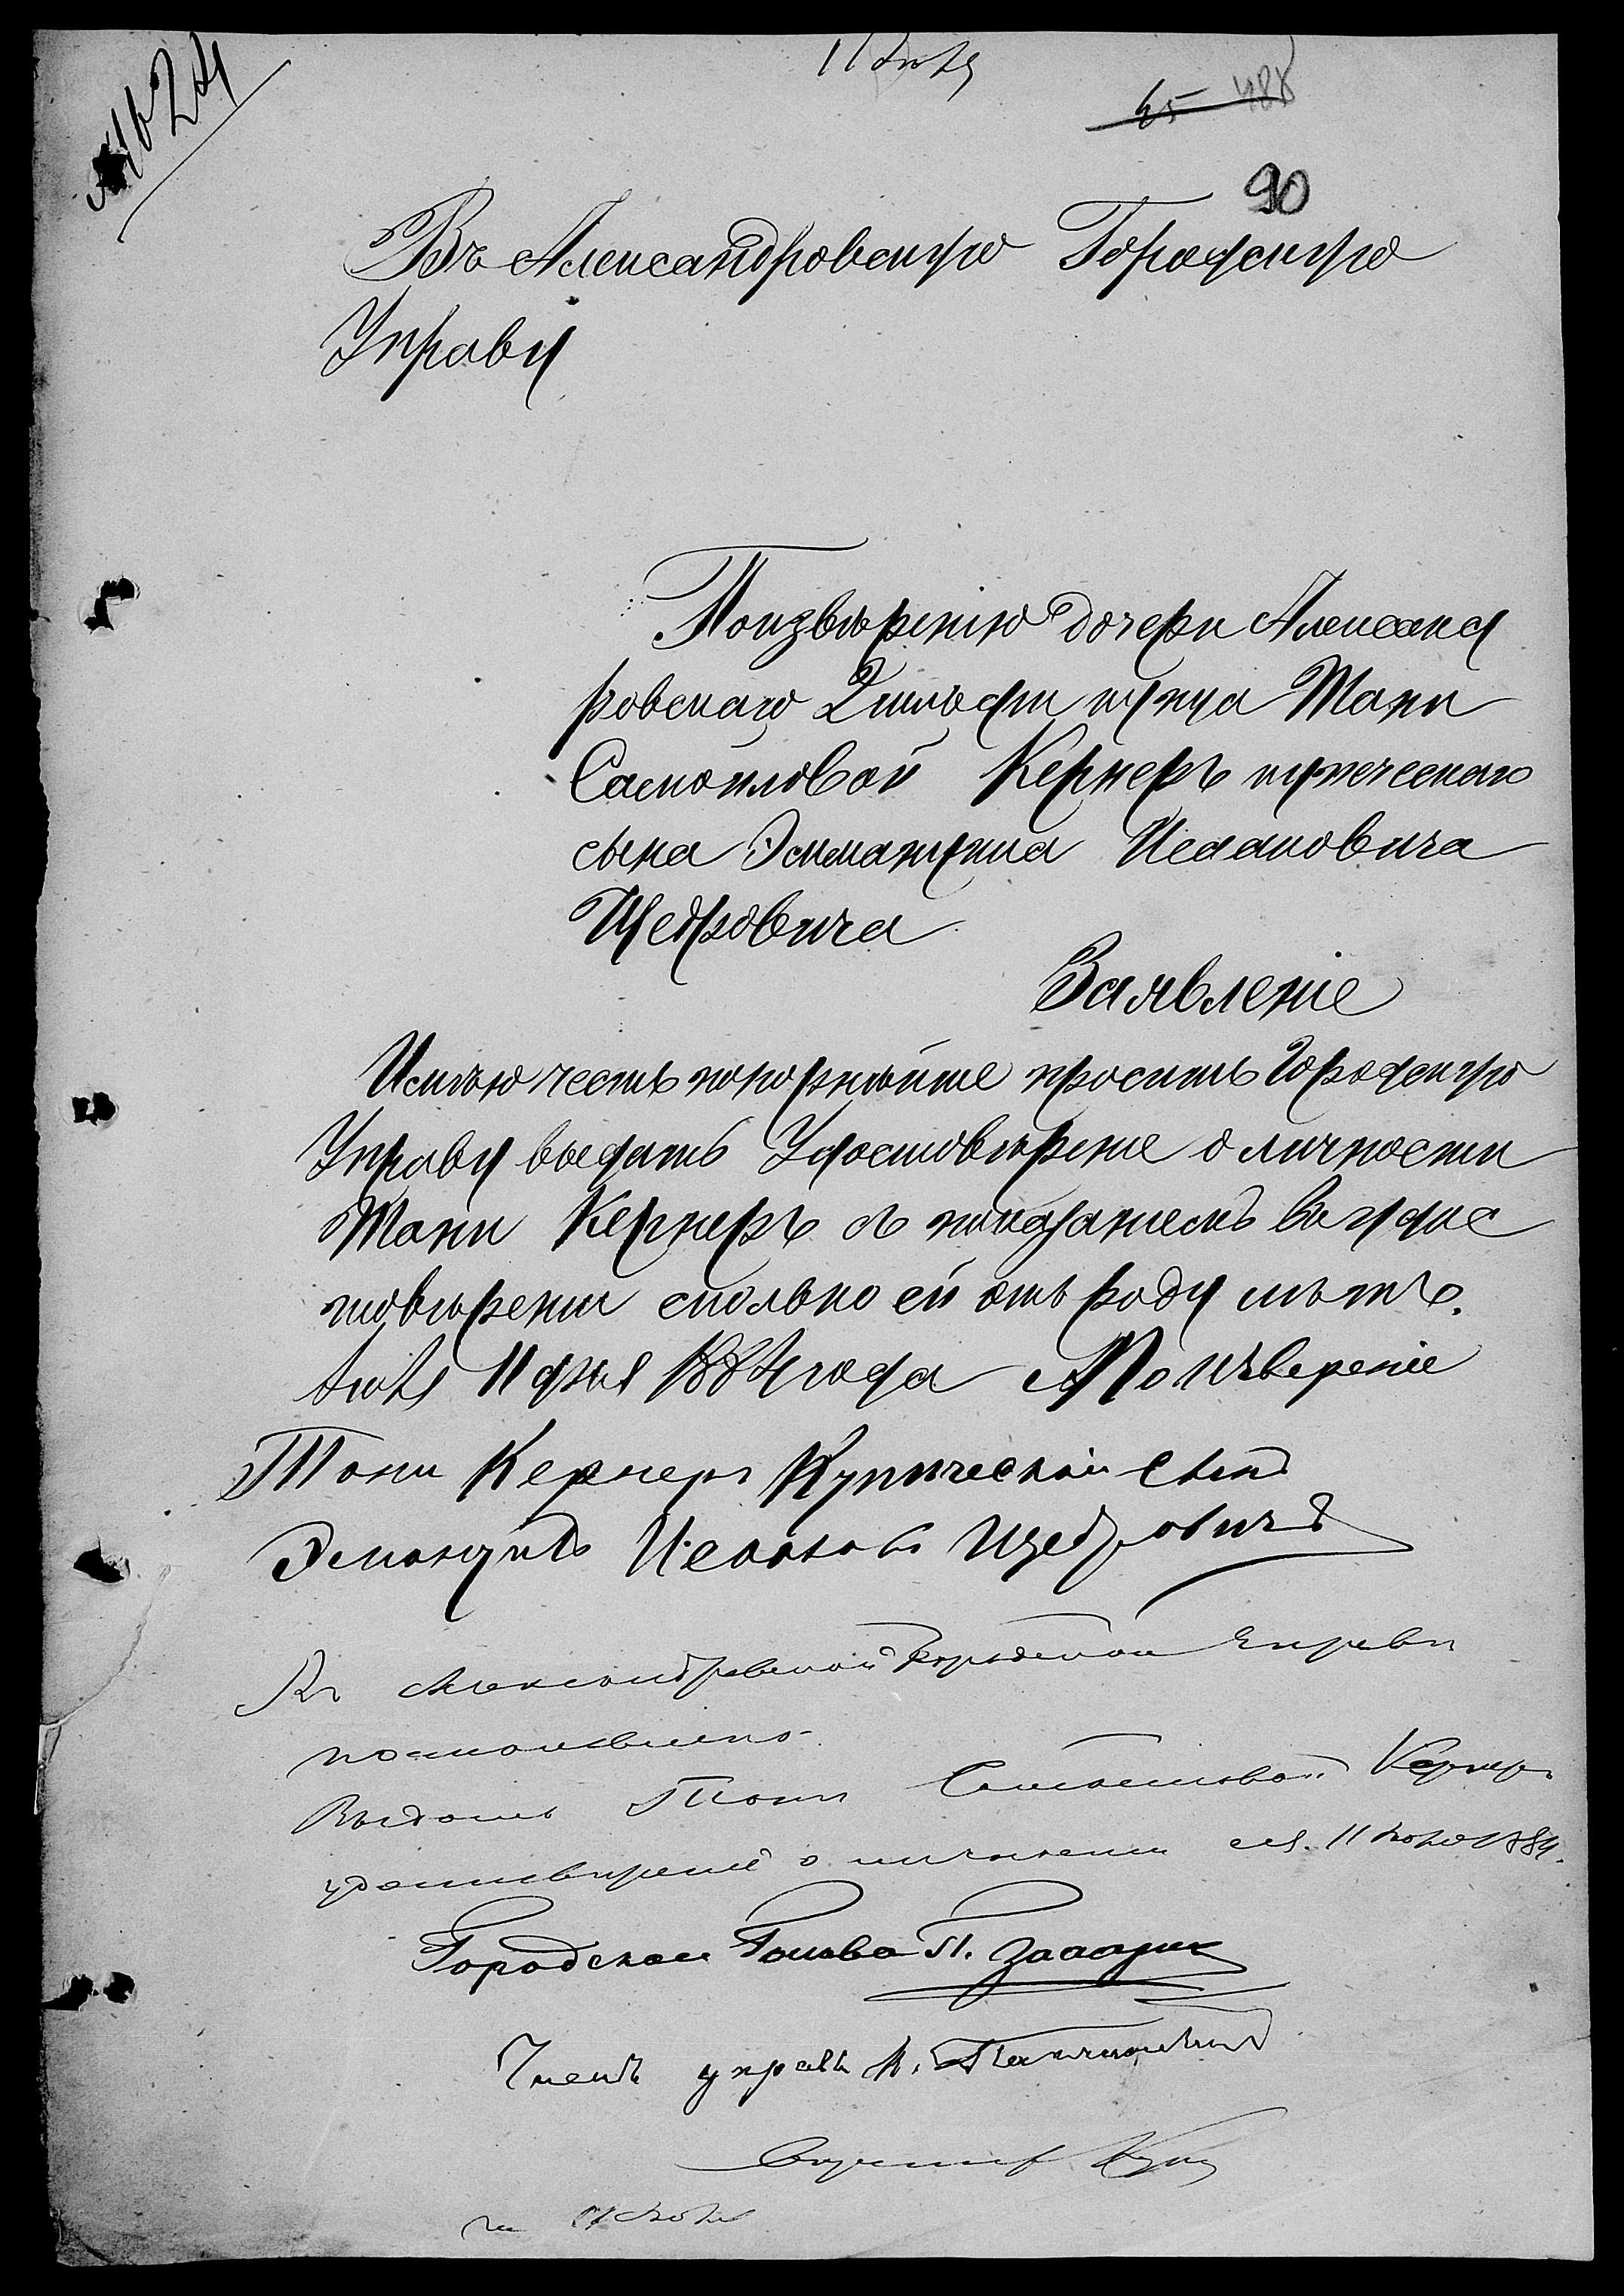 № 1624
11 Июля
45 488
90
Въ Александровскую Городскую
Управу
По изверению дочери Александ
ровскаго 2 гильдии купца Тани
Самойловой Кернеръ купеческаго
сына Эммануила Исааковича
Щедровича
Заявление
Имѣю честь покорнѣйше просить Городскую
Управу выдать Удостовѣрение о личности
Тани Кернеръ съ показаниемъ въ удос
товѣрении сколько ей отъ роду лѣтъ.
Июля 11 дня 1884 года По извѣрение
Тани Кернеръ Купический сынъ
Эмануилъ Исааковъ Щедровичъ
Въ Александровской Городской Управѣ
постановлено
Выдать Тани Самойловой Кернеръ
удостовѣрение о личности ея. 11 Июля 1884.
Городской Голова П.
Членъ управы